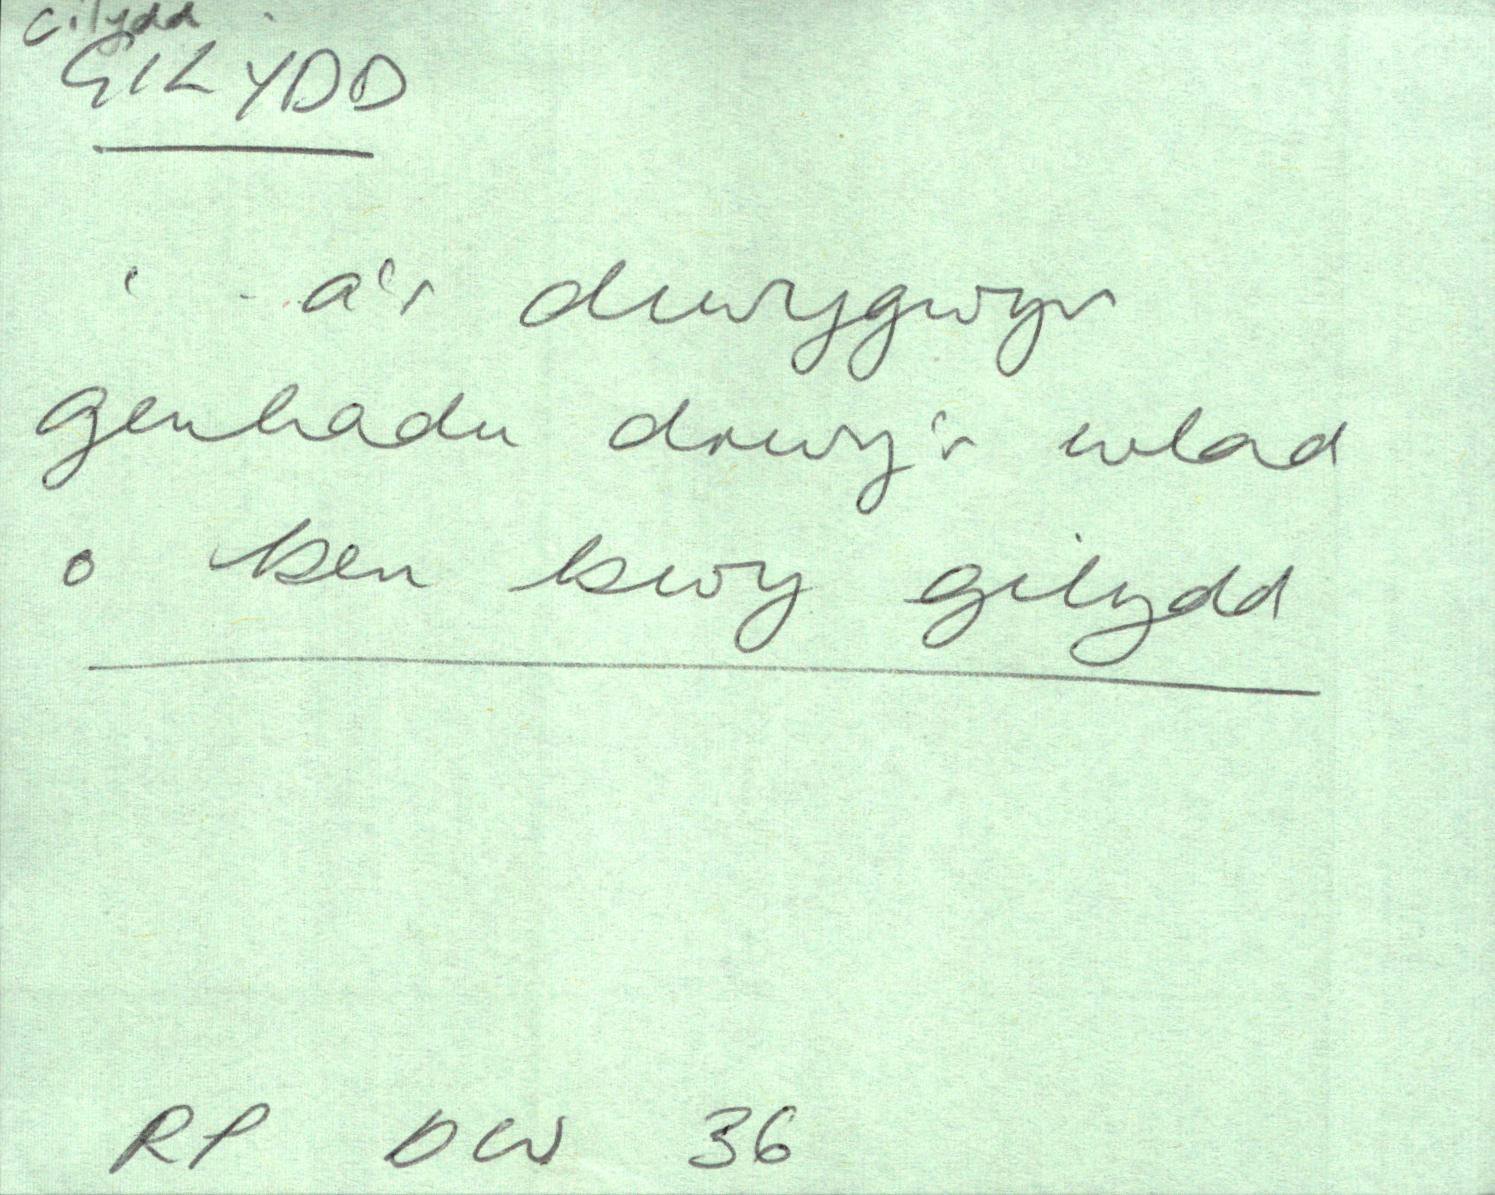 Cilydd
GILYDD
' . . a'r diwygwyr
genhadu drwy'r wlad
o ben bwy gilydd
RP DCW 36